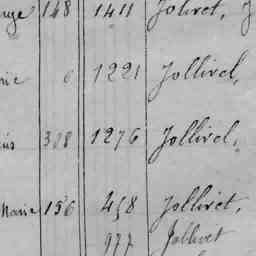 148 1411 Jolivet,
6 1221 Jollivel,
1276 Jollivel,
Marie 156 458 Jollivet,
977 Jollivet